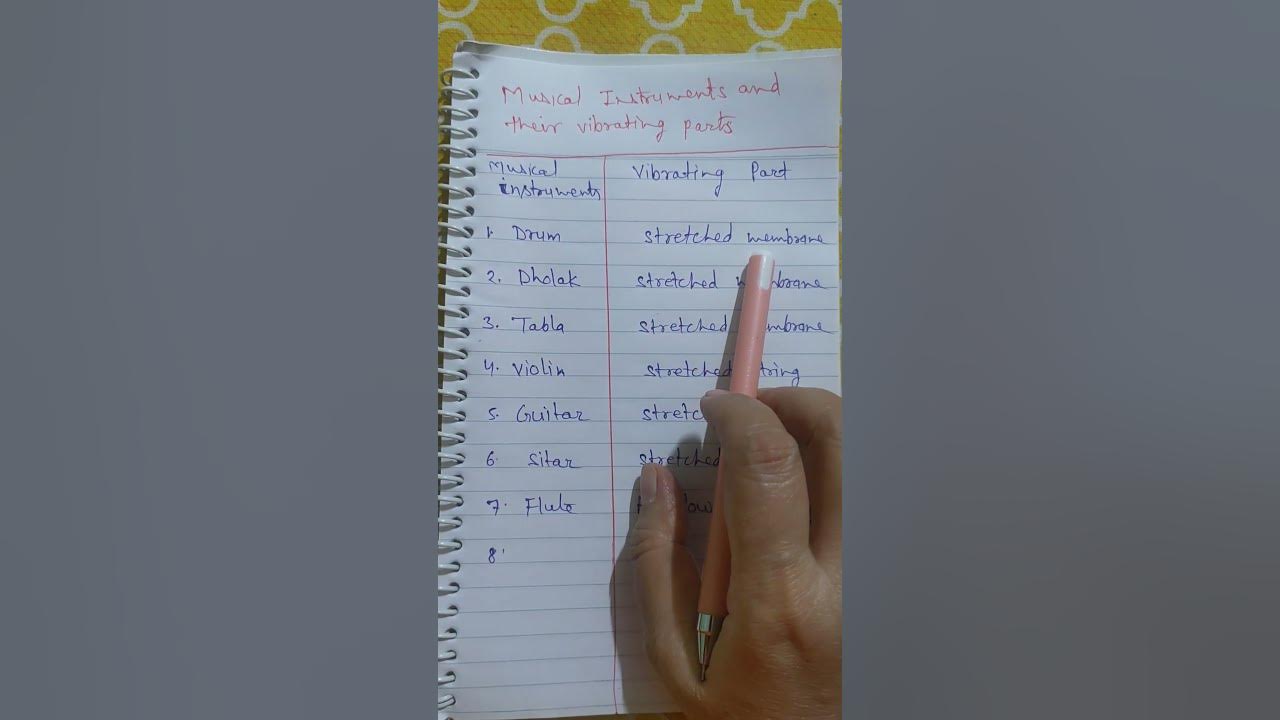 Musical Instruments and
their vibrating parts
Musical instruments Vibrating Part
1. Drum stretched membrane
2. Dholak stretched
3. Tabla stretched
4. Violin stretched string
5. Guitar
6. Sitar stretched
7. Flute
8.